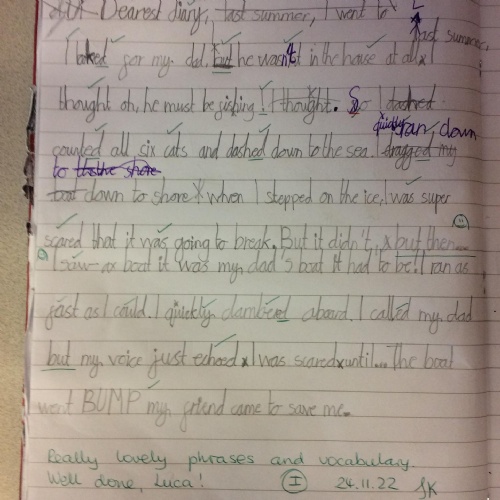 Dearest diary, last summer, I went to L
last summer,
I looked for my dad but he wasn't in the house at all x I
thought oh, he must be fishing! I thought. So I dashed
quickly ran down
counted all six cats and dashed down to the sea. I dragged my
to the shore
boat down to shore x when I stepped on the ice, I was super
scared that it was going to break. But it didn't, x but then...
I saw a boat it was my dad's boat it had to be! I ran as
fast as I could. I quickly clambered aboard. I called my dad
but my voice just echoed x I was scared x until... The boat
went BUMP my friend came to save me.
Really lovely phrases and vocabulary.
Well done, Luca! I 24.11.22 SK